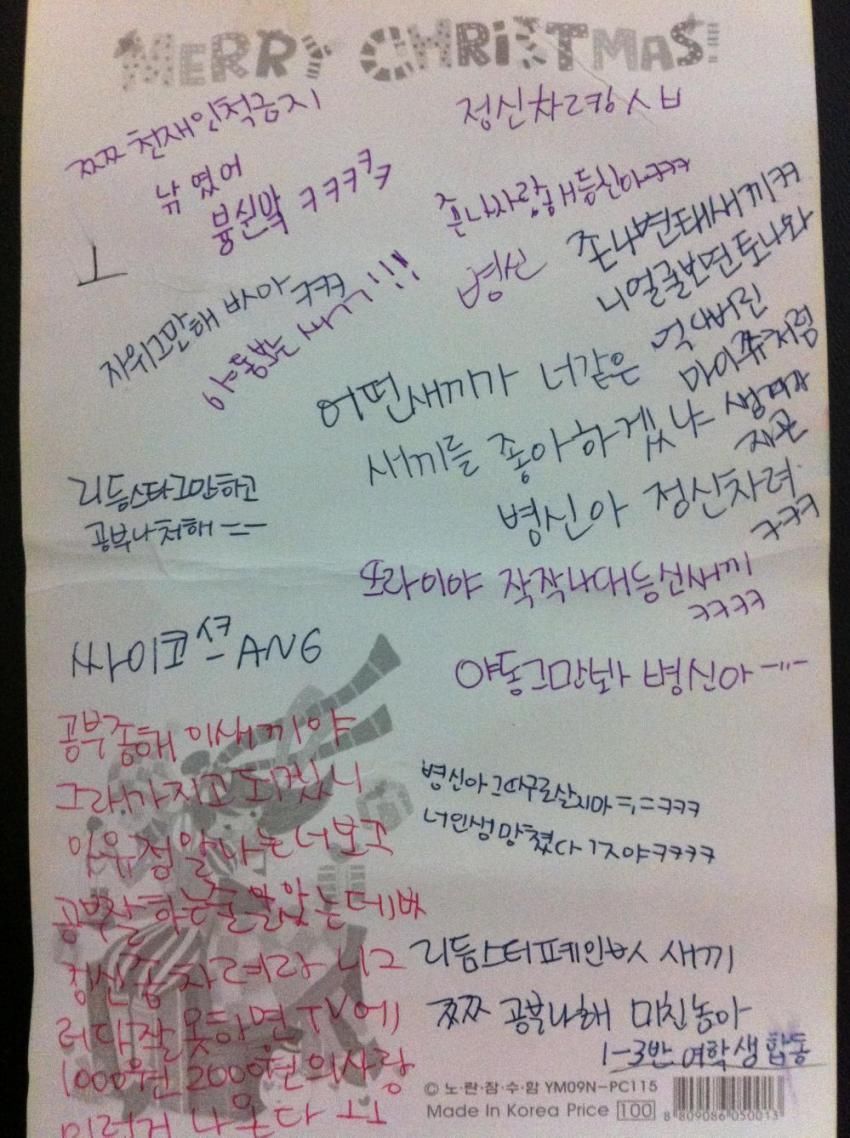 MERRY CHRISTMAS!
쯔쯔 천재인척금지
정신차려캉 ㅅㅂ
낚 였어
븅쉰박 ㅋㅋㅋㅋㅋ
존나사랑해등신아ㅋㅋㅋ
병신
존나변태새끼ㅋㅋ
니얼굴보면토나와
ㅗ
자위그만해 ㅋㅋㅋ
야동보는 새끼!!!
어떤새끼가 너같은
마이쮸처럼
새끼를 좋아하겠냐 생겨가지곤
병신아 정신차려
ㅋㅋㅋ
리듬스타그만하고
공부나처해 ㅡㅡ
또라이야 작작나대등신새끼
ㅋㅋㅋㅋ
싸이코 ANG
야동그만봐 병신아 ㅡㅡ
공부좀해 이새끼야
그래가지고 되겠니
정말나는너보고
공부잘하는줄알았는데
정신좀 차려라 니그
러다잘못하면 TV에
1000원 200원의사랑
이런거 나온다 ㅜㅜ
병신아 그따구로살지마 ㅋㅋㅋ
너인생망쳤다 거지야ㅋㅋㅋㅋ
리듬스터페인 새끼
쯔쯔 공부나해 미친놈아
1-3반 여학생 합동
© 노·란·잠·수·함 YM09N-PC115
Made In Korea Price 100
8 809086 050013